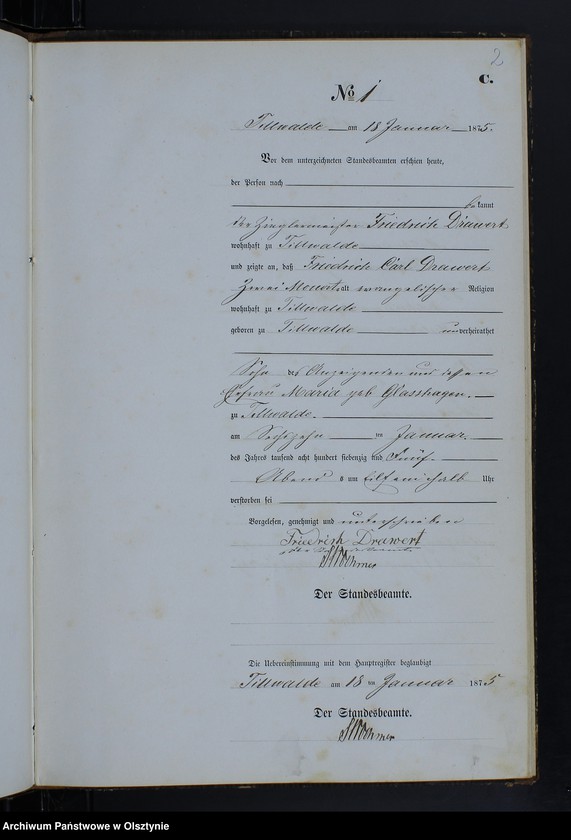 2
C.
No 1
Tillwalde am 18 Januar 1875.
Vor dem unterzeichneten Standesbeamten erschien heute,
der Person nach
bekannt
der Zieglermeister Friedrich Drawert
wohnhaft zu Tillwalde
und zeigte an, daß Friedrich Carl Drawert
Zwei Monat alt evangelischer Religion
wohnhaft zu Tillwalde
geboren zu Tillwalde unverheirathet
Sohn des Anzeigenden und dessen
Ehefrau Maria geb Glasshagen.
zu Tillwalde.
am Sechszehn ten Januar.
des Jahres tausend acht hundert siebenzig und Fünf.
Abend s um Elf ein halb Uhr
verstorben sei
Vorgelesen, genehmigt und unterschrieben
Friedrich Drawert
Der Standesbeamte.
Die Uebereinstimmung mit dem Hauptregister beglaubigt
Tillwalde am 18 ten Januar 1875
Der Standesbeamte.
Archiwum Państwowe w Olsztynie